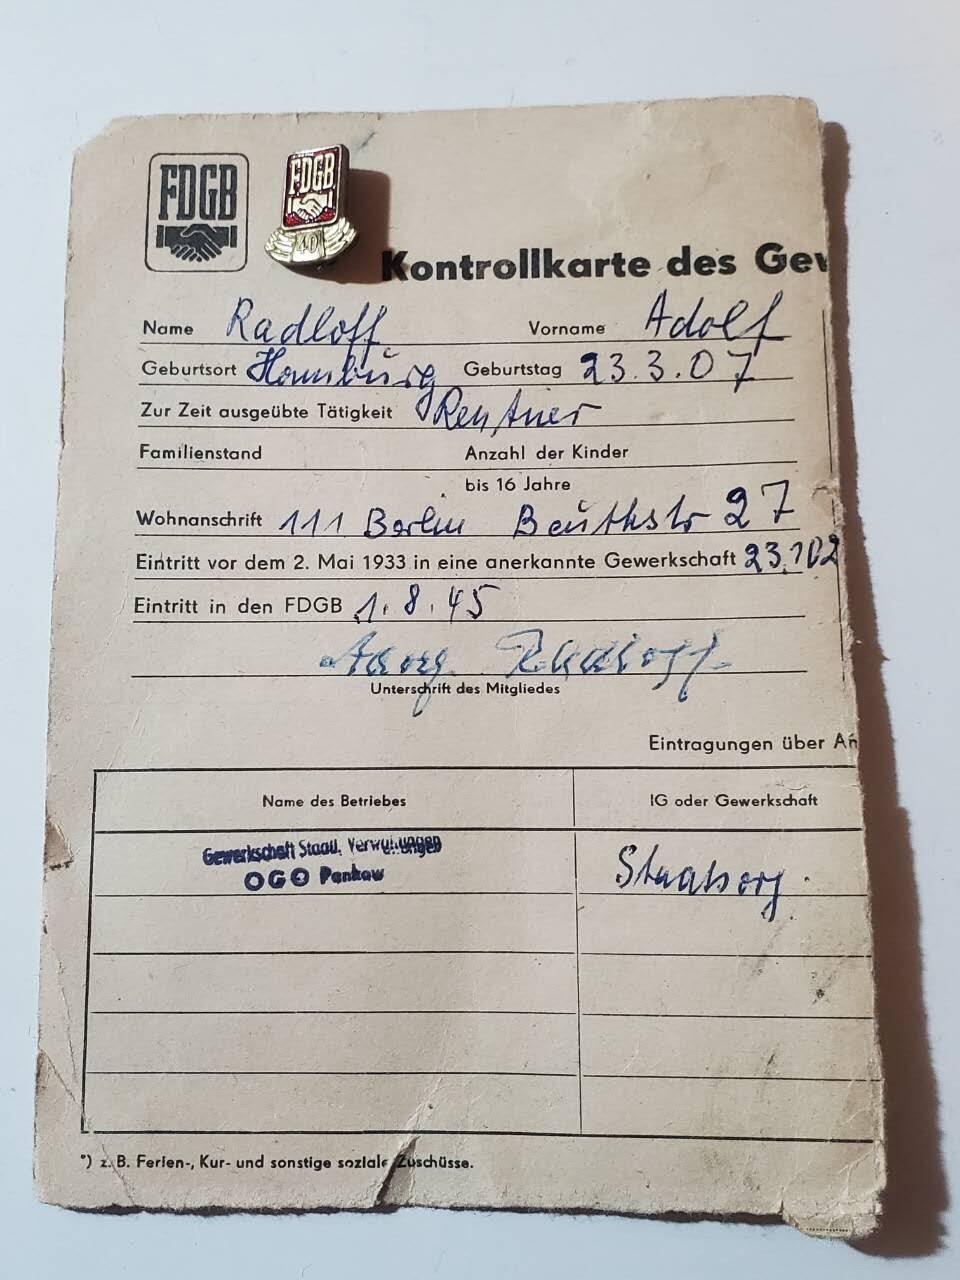 FDGB
FDGB
40
Kontrollkarte des Gew
Name Radloff Vorname Adolf
Geburtsort Hamburg Geburtstag 23.3.07
Zur Zeit ausgeübte Tätigkeit Rentner
Familienstand Anzahl der Kinder
bis 16 Jahre
Wohnanschrift 111 Berlin Beuthstr 27
Eintritt vor dem 2. Mai 1933 in eine anerkannte Gewerkschaft 23.
Eintritt in den FDGB 1.8.45
Radloff
Unterschrift des Mitgliedes
Eintragungen über An
Name des Betriebes IG oder Gewerkschaft
Gewerkschaft Staatl. Verwaltungen
OGO Pankow
*) z. B. Ferien-, Kur- und sonstige soziale Zuschüsse.